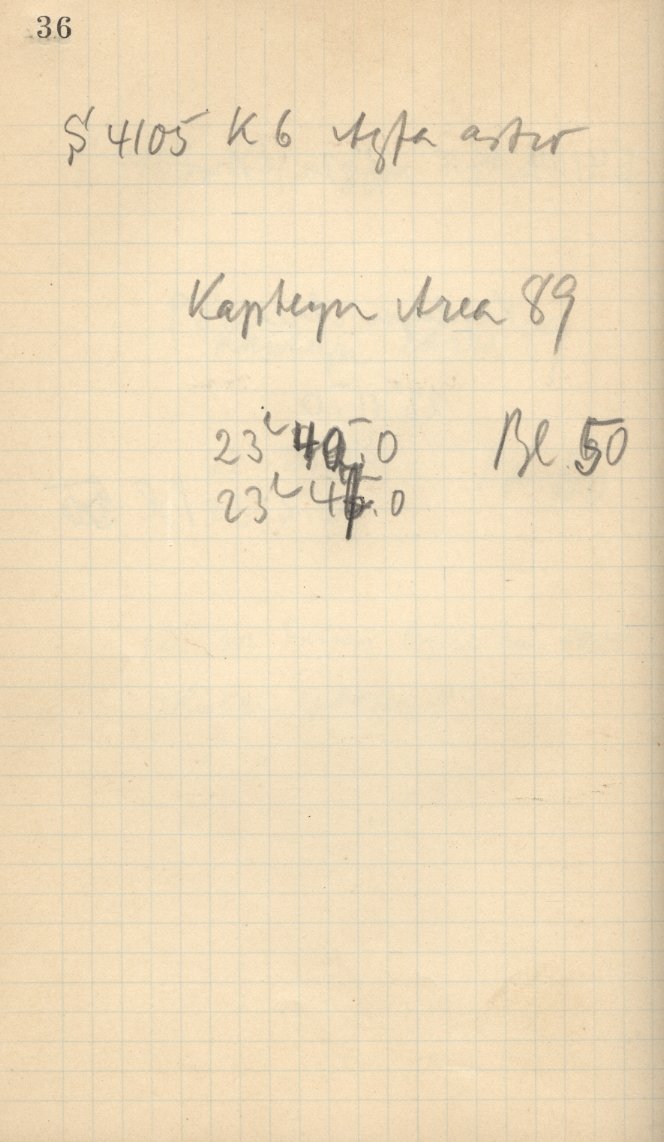 36
S 4105 K 6 Agfa astro
Kapteyn Area 89
23h 40m.0 Bl 50
23h 4 .0